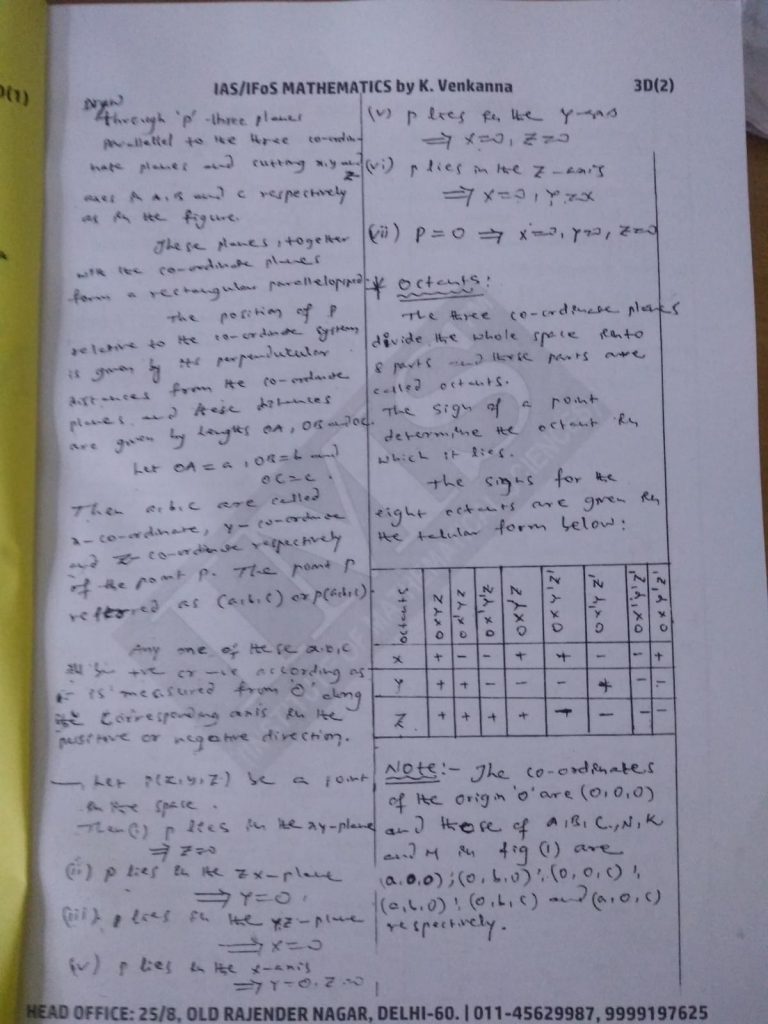 IAS/IFoS MATHEMATICS by K. Venkanna
3D(2)
D(1)
Now
through 'p' three planes
parallel to the three co-ordi-
nate planes and cutting x, y and
z-
axes in A, B and C respectively
as in the figure.
These planes, together
with the co-ordinate planes
form a rectangular parallelopiped.
The position of P
relative to the co-ordinate system
is given by its perpendicular
distances from the co-ordinate
planes and these distances
are given by lengths OA, OB and OC.
Let OA = a, OB = b and
OC = c.
Then a, b, c are called
x-co-ordinate, y-co-ordinate
and z-co-ordinate respectively
of the point P. The point P
referred as (a,b,c) or p(a,b,c)
Any one of these a, b, c
be +ve or -ve according as
is measured from 'O' along
corresponding axis in the
positive or negative direction.
— Let P(x,y,z) be a point
in the space.
Then (i) p lies in the xy-plane
⇒ z=0
(ii) p lies in the zx-plane
⇒ y=0
(iii) p lies in the yz-plane
⇒ x=0
(iv) p lies in the x-axis
⇒ y=0, z=0
(v) p lies in the y-axis
⇒ x=0, z=0
(vi) p lies in the z-axis
⇒ x=0, y=
(vii) P=0 ⇒ x=0, y=0, z=0
* Octants:
The three co-ordinate planes
divide the whole space into
8 parts and these parts are
called octants.
The sign of a point
determine the octant in
which it lies.
The signs for the
eight octants are given in
the tabular form below:
octants OXYZ OX'YZ OX'Y'Z OXY'Z OXY'Z' OX'YZ' OX'Y'Z' OXY'Z'
X + - - + + - - +
Y + + - - - + - -
Z + + + + - - - -
Note:- The co-ordinates
of the origin 'O' are (0,0,0)
and those of A, B, C, N, K
and M in fig (1) are
(a,0,0); (0,b,0); (0,0,c);
(a,b,0); (0,b,c) and (a,0,c)
respectively.
IMS
HEAD OFFICE: 25/8, OLD RAJENDER NAGAR, DELHI-60. | 011-45629987, 9999197625